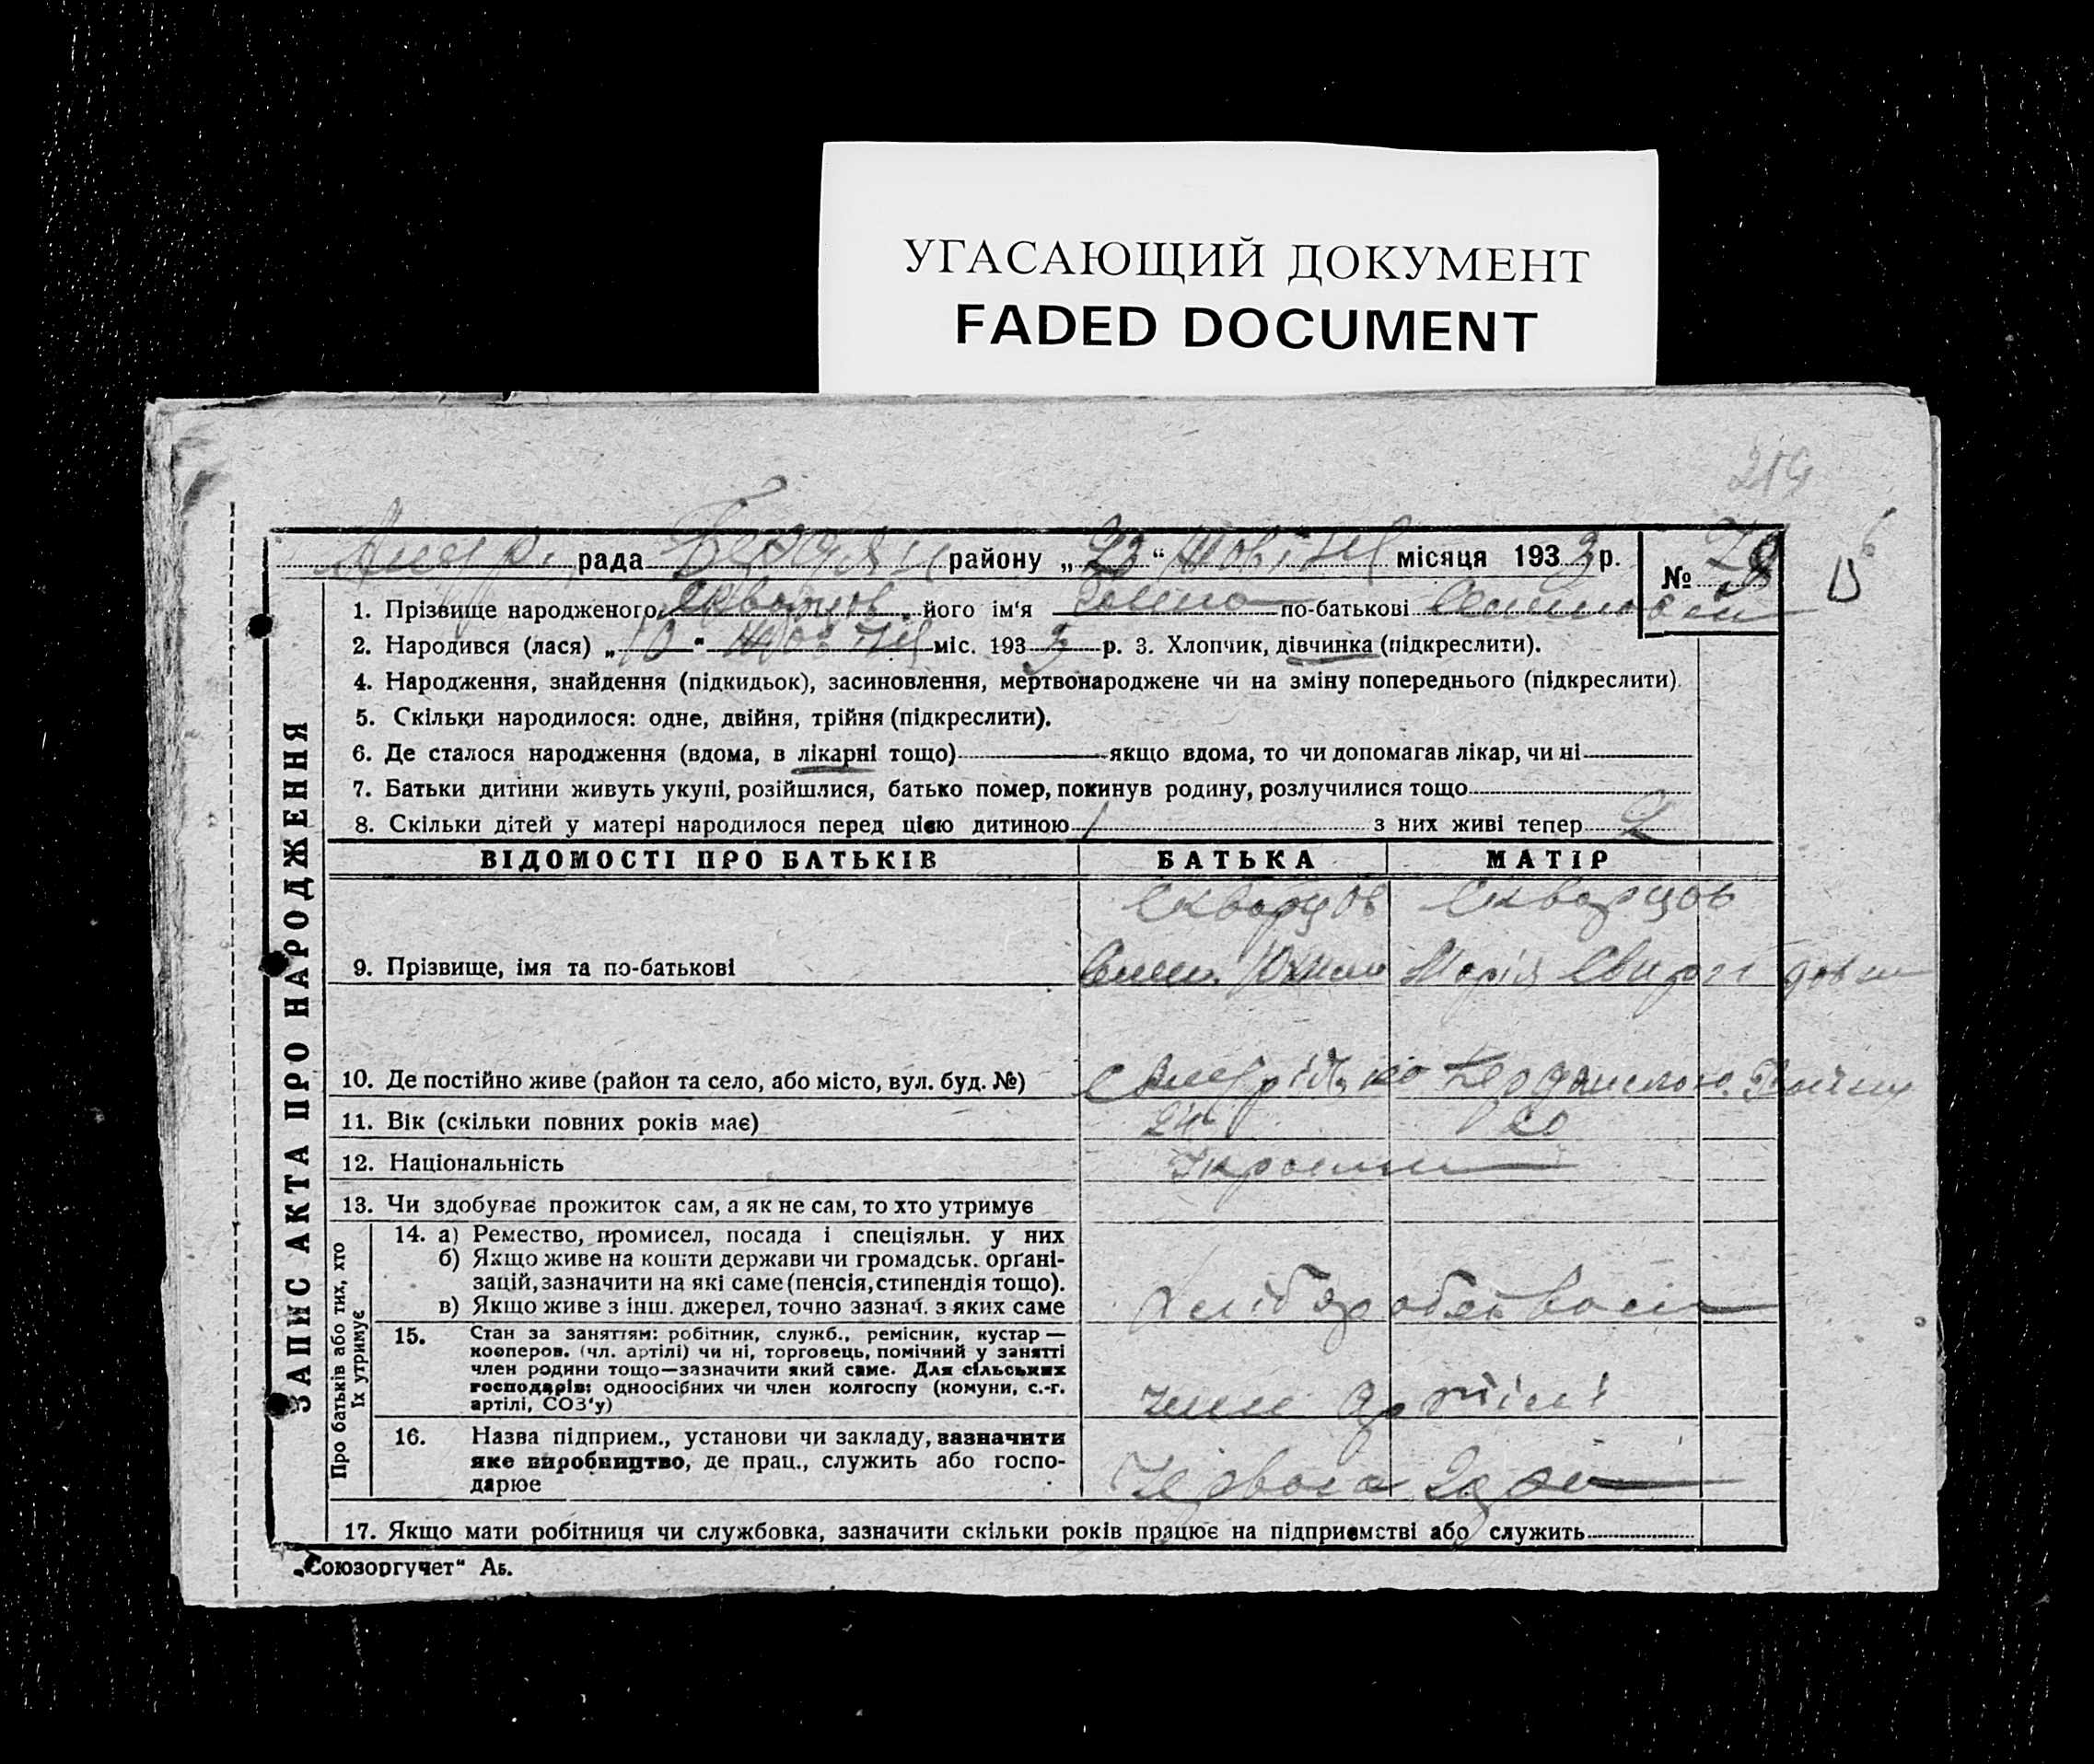 УГАСАЮЩИЙ ДОКУМЕНТ
FADED DOCUMENT
219
рада району „23“ Жовтня місяця 1933 р. №
1. Прізвище народженого Скварцов його ім'я по-батькові
2. Народився (лася) „10“ Жовтня міс. 1933 р. 3. Хлопчик, дівчинка (підкреслити).
4. Народження, знайдення (підкидьок), засиновлення, мертвонароджене чи на зміну попереднього (підкреслити)
5. Скільки народилося: одне, двійня, трійня (підкреслити).
6. Де сталося народження (вдома, в лікарні тощо) якщо вдома, то чи допомагав лікар, чи ні
7. Батьки дитини живуть укупі, розійшлися, батько помер, покинув родину, розлучилися тощо
8. Скільки дітей у матері народилося перед цією дитиною 1 з них живі тепер 2
ВІДОМОСТІ ПРО БАТЬКІВ БАТЬКА МАТІР
Скварцов Скварцов
9. Прізвище, імя та по-батькові Марія
10. Де постійно живе (район та село, або місто, вул. буд. №)
11. Вік (скільки повних років має) 24 20
12. Національність
13. Чи здобуває прожиток сам, а як не сам, то хто утримує
14. а) Ремество, промисел, посада і спеціяльн. у них
б) Якщо живе на кошти держави чи громадськ. орґані-
зацій, зазначити на які саме (пенсія, стипендія тощо).
в) Якщо живе з інш. джерел, точно зазнач. з яких саме
15. Стан за заняттям: робітник, служб., ремісник, кустар —
кооперов. (чл. артілі) чи ні, торговець, помічний у занятті
член родини тощо—зазначити який саме. Для сільських
господарів: одноосібних чи член колгоспу (комуни, с.-г.
артілі, СОЗ'у) член артілі
16. Назва підприєм., установи чи закладу, зазначити
яке виробництво, де прац., служить або госпо-
дарює Червона
17. Якщо мати робітниця чи службовка, зазначити скільки років працює на підприємстві або служить
„Союзоргучет“ Аб.
ЗАПИС АКТА ПРО НАРОДЖЕННЯ
Про батьків або тих, хто
їх утримує